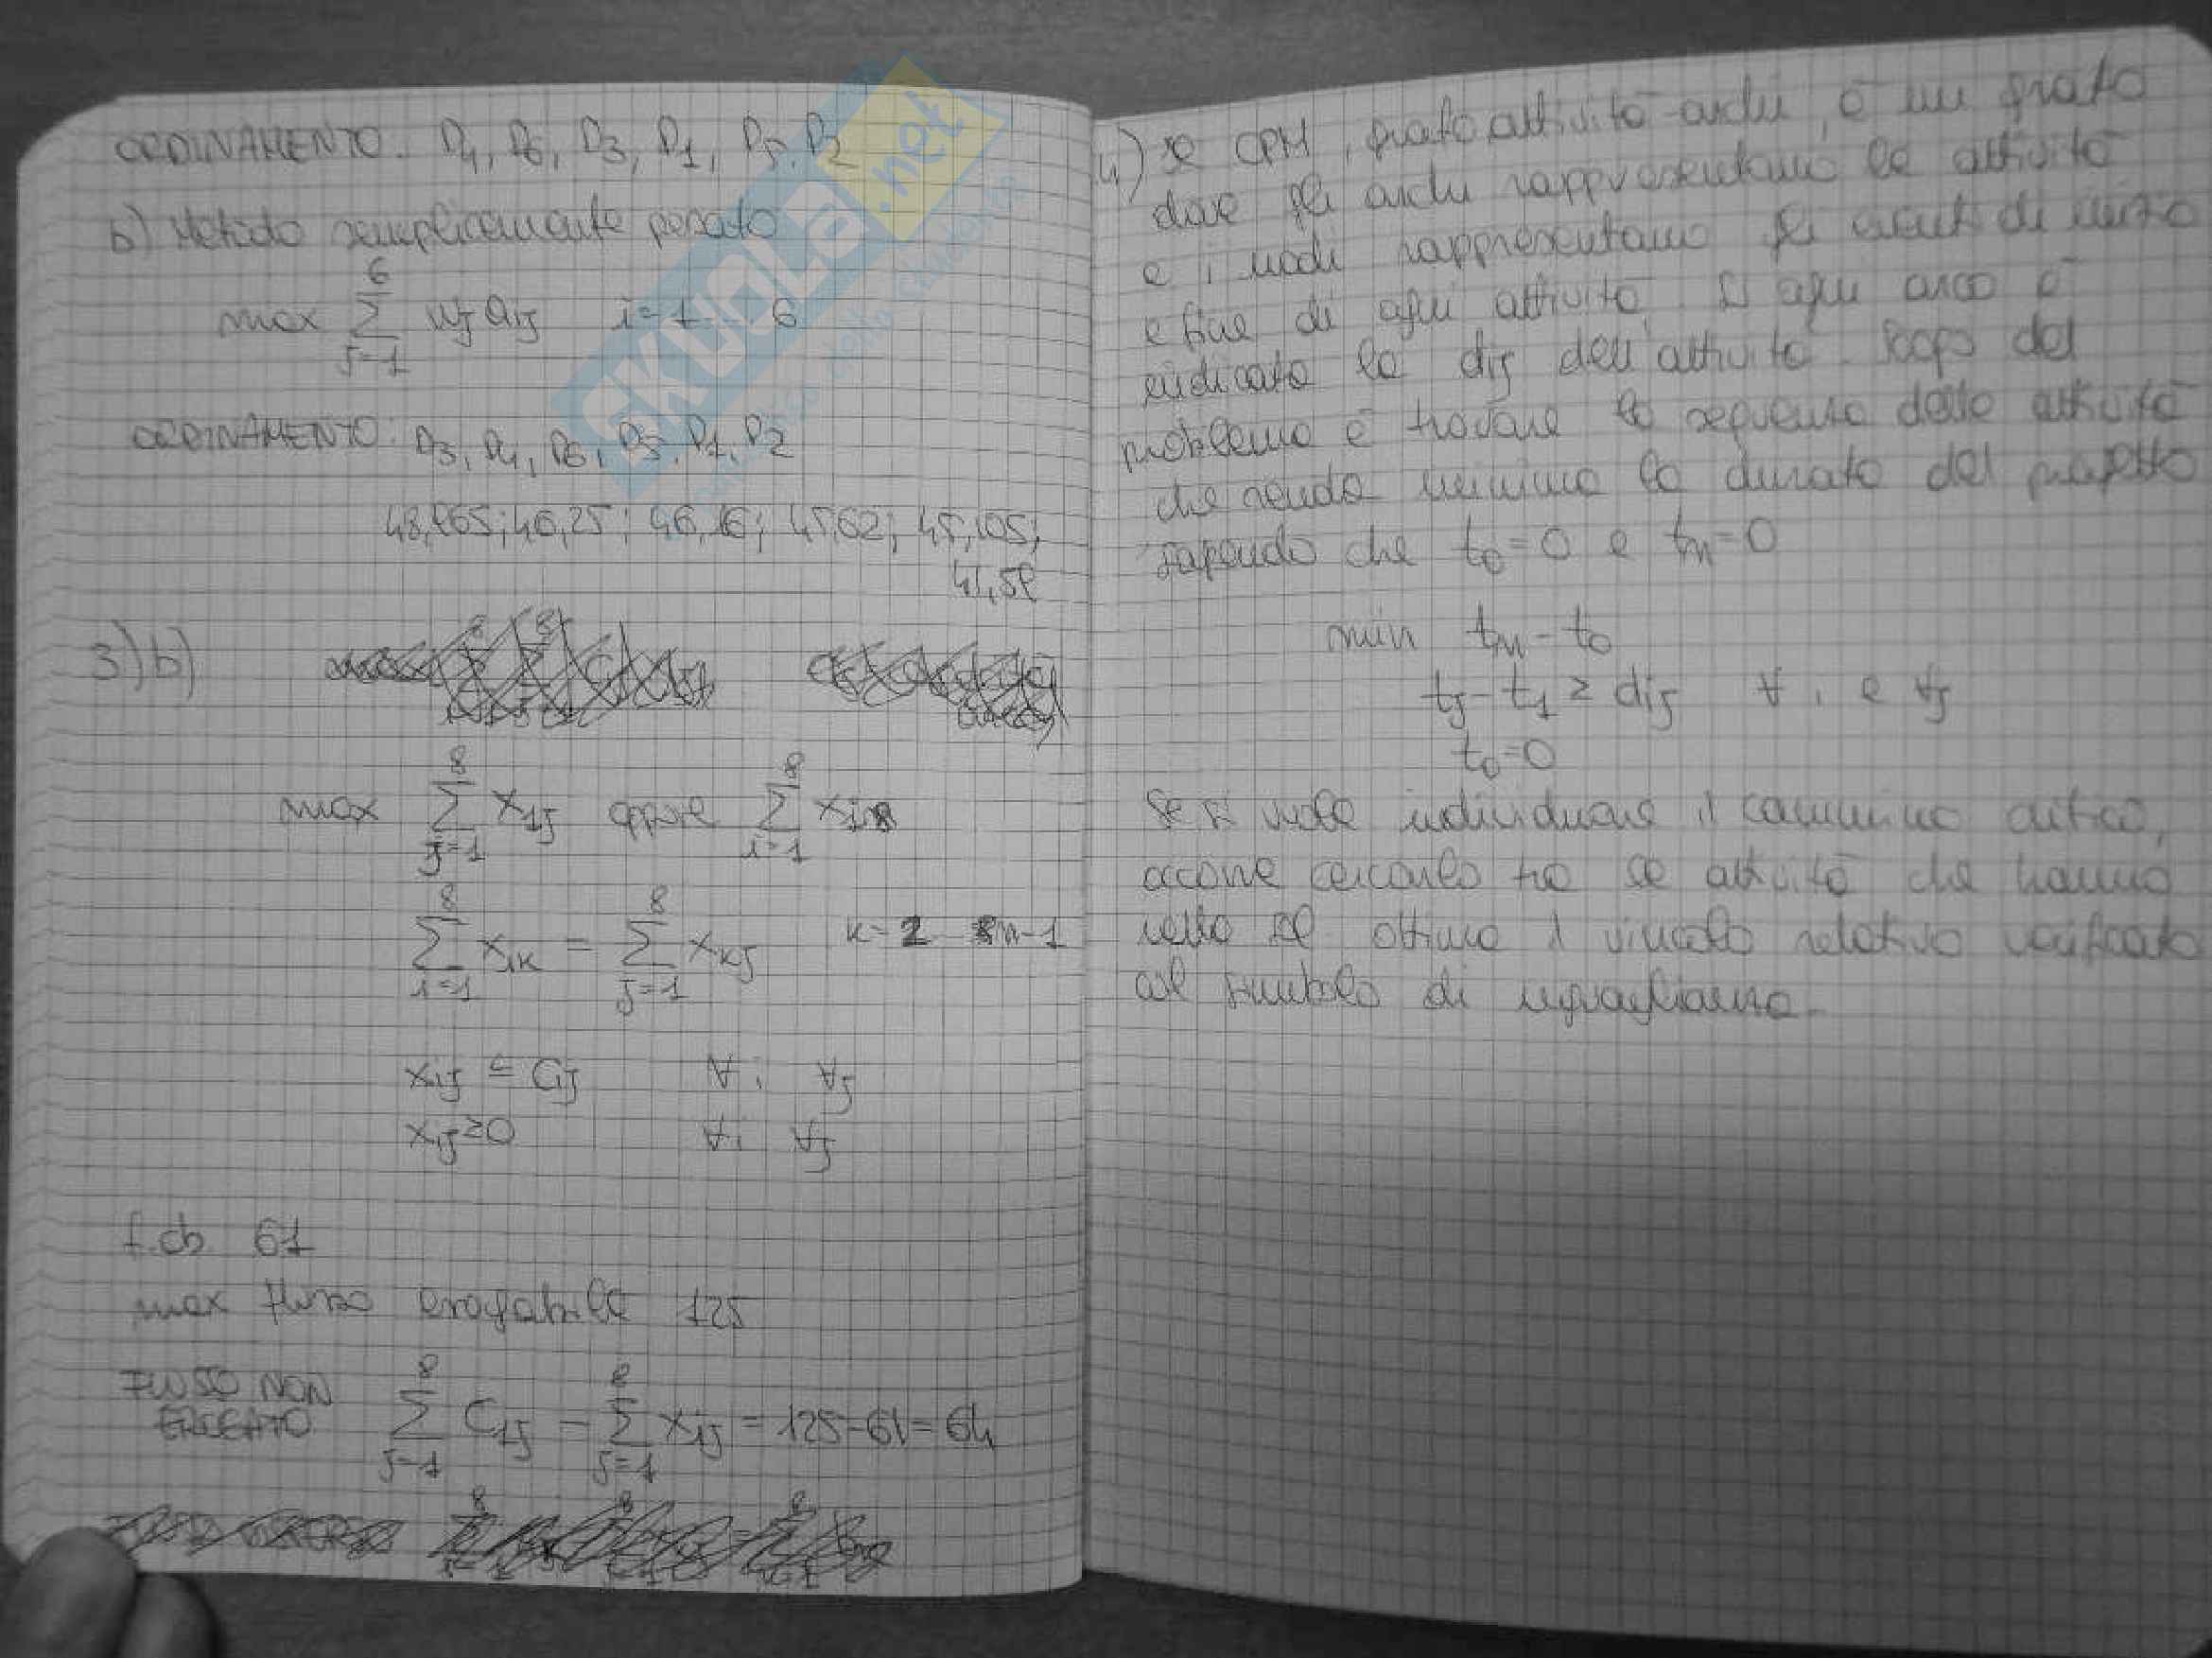 ORDINAMENTO: P4, P6, P3, P1, P5, P2
b) Metodo semplicemente pesato
max 6 Σ j=1 wj aij i=1 6
ORDINAMENTO: P3, P4, P6, P5, P1, P2
46,25; 46,16; 45,62; 45,105;
3)b)
max 8 Σ j=1 x1j oppure 8 Σ i=1 xi8
8 Σ i=1 xik = 8 Σ j=1 xkj k=2 n-1
xij ≤ Cij ∀i ∀j
xij ≥ 0 ∀i ∀j
f.ob 61
max flusso erogabile 125
FLUSSO NON
EROGATO 8 Σ j=1 C1j - 8 Σ j=1 x1j = 125-61 = 64
4) Il CPM, grafo attività-archi, è un grafo
dove gli archi rappresentano le attività
e i nodi rappresentano gli eventi di inizio
e fine di ogni attività. Ad ogni arco è
indicata la dij dell'attività. Scopo del
problema è trovare la sequenza delle attività
che renda minima la durata del progetto
sapendo che t0=0 e tn=0
min tn - t0
tj - ti ≥ dij ∀ i e ∀j
t0=0
Se si vuole individuare il cammino critico,
occorre cercarlo tra le attività che hanno
nella sol ottima il vincolo relativo verificato
col simbolo di uguaglianza.
SKUOLA.net